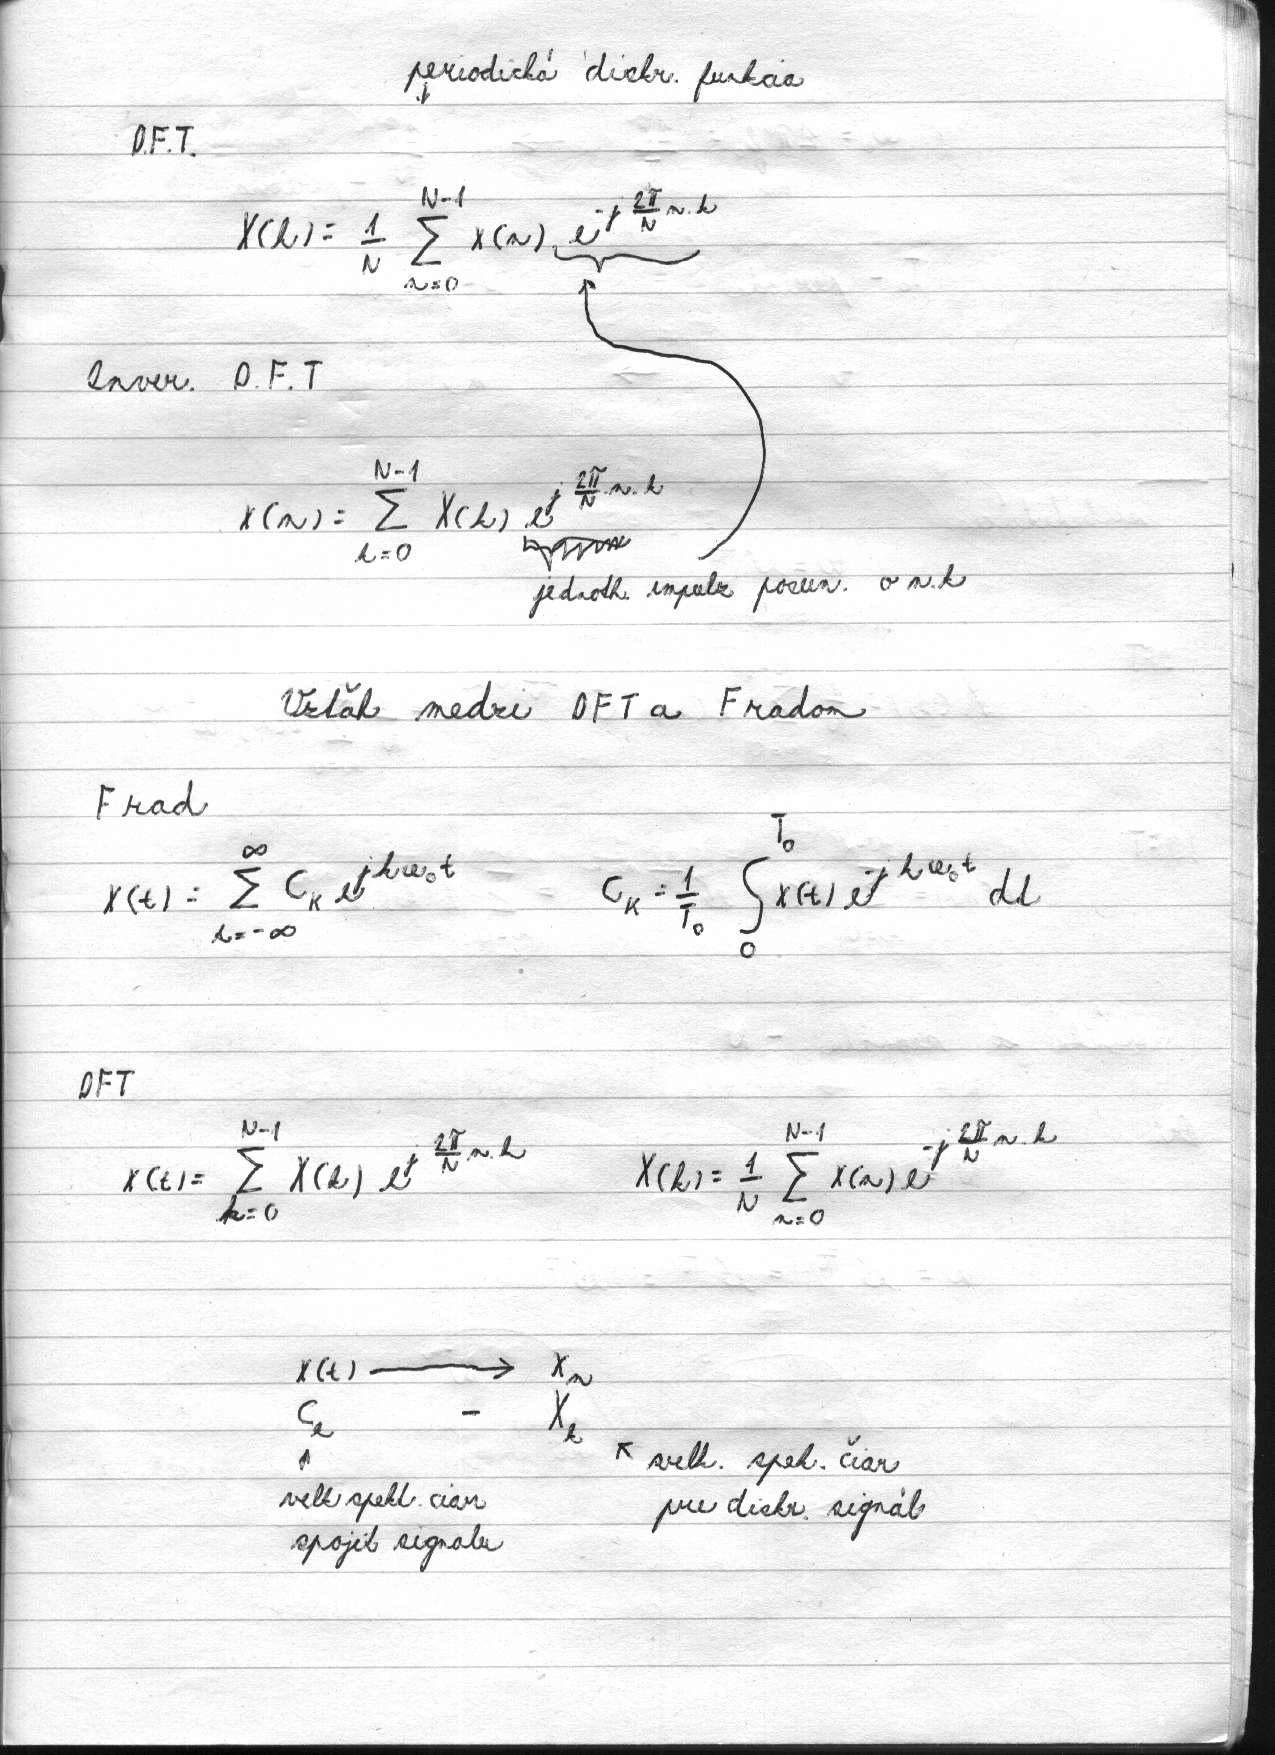 periodická diskr. funkcia
D.F.T.
X(k) = 1/N ∑_{n=0}^{N-1} x(n) e^{-j 2π/N n.k}
Inver. D.F.T
x(n) = ∑_{k=0}^{N-1} X(k) e^{j 2π/N n.k}
jednotk. impulz posun. o n.k
Vzťah medzi DFT a F radom
F rad
x(t) = ∑_{k=-∞}^{∞} C_K e^{jkω₀t} C_K = 1/T₀ ∫_0^{T₀} x(t) e^{-jkω₀t} dt
DFT
x(t) = ∑_{k=0}^{N-1} X(k) e^{j 2π/N n.k} X(k) = 1/N ∑_{n=0}^{N-1} x(n) e^{-j 2π/N n.k}
x(t) → x_n
C_k - X_k
↑ ↖ velk. spek. čiar
velk spekt. ciar pre diskr. signál
spojit signalu